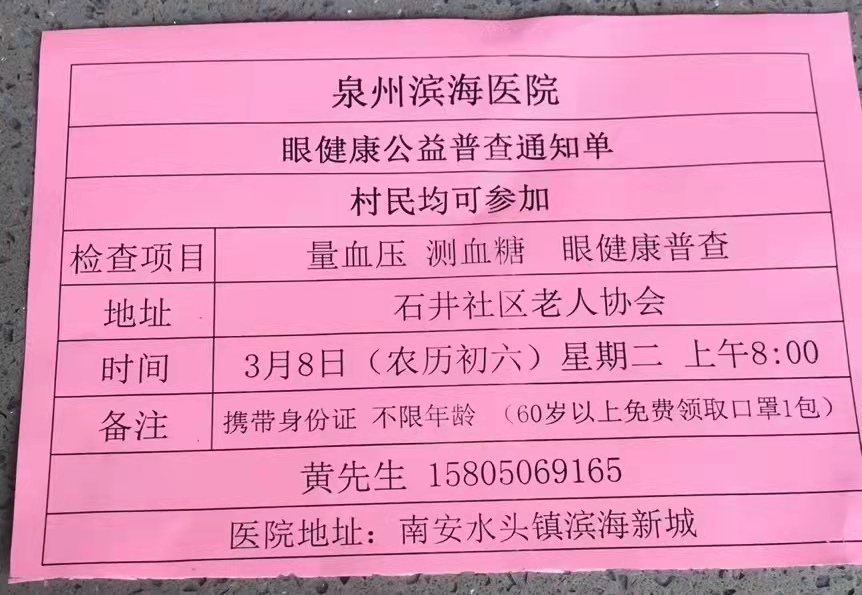 泉州滨海医院
眼健康公益普查通知单
村民均可参加
检查项目 量血压 测血糖 眼健康普查
地址 石井社区老人协会
时间 3月8日（农历初六）星期二 上午8:00
备注 携带身份证 不限年龄 （60岁以上免费领取口罩1包）
黄先生 15805069165
医院地址：南安水头镇滨海新城